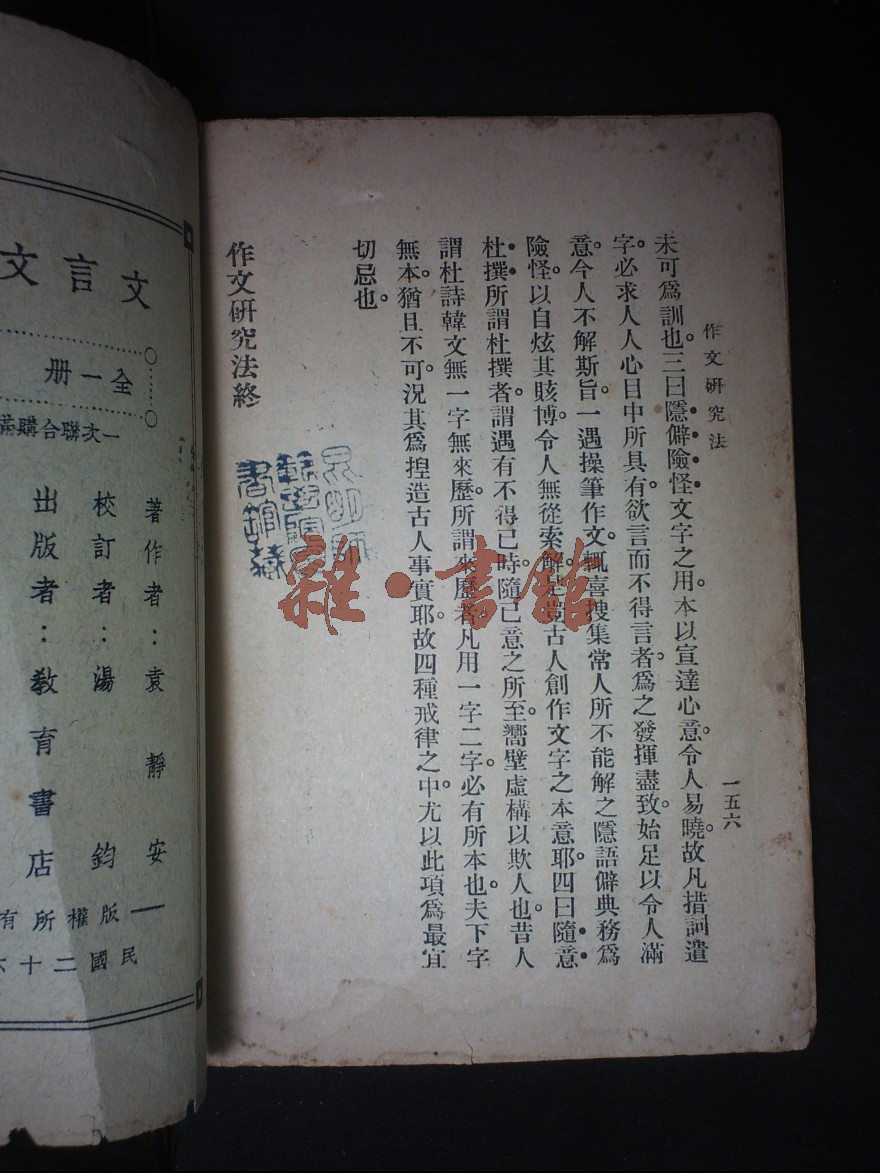 作文研究法
一五六
未可爲訓也。三曰隱僻險怪文字之用。本以宣達心意。令人易曉。故凡措詞遣
字。必求人人心目中所具有。欲言而不得言者。爲之發揮盡致。始足以令人滿
意。今人不解斯旨。一遇操筆作文。輒喜搜集常人所不能解之隱語僻典。務爲
險怪。以自炫其賅博。令人無從索解。是豈古人創作文字之本意耶。四曰隨意
杜撰所謂杜撰者。謂遇有不得已時。隨己意之所至。嚮壁虛構以欺人也。昔人
謂杜詩韓文無一字無來歷。所謂來歷者。凡用一字二字。必有所本也。夫下字
無本。猶且不可。況其爲揑造古人事實耶。故四種戒律之中。尤以此項爲最宜
切忌也。
作文研究法終
雜·書館
文言文
全一册
一次聯合購滿
著作者:袁靜安
校訂者:湯鈞
出版者:教育書店
版權所有
民國二十六